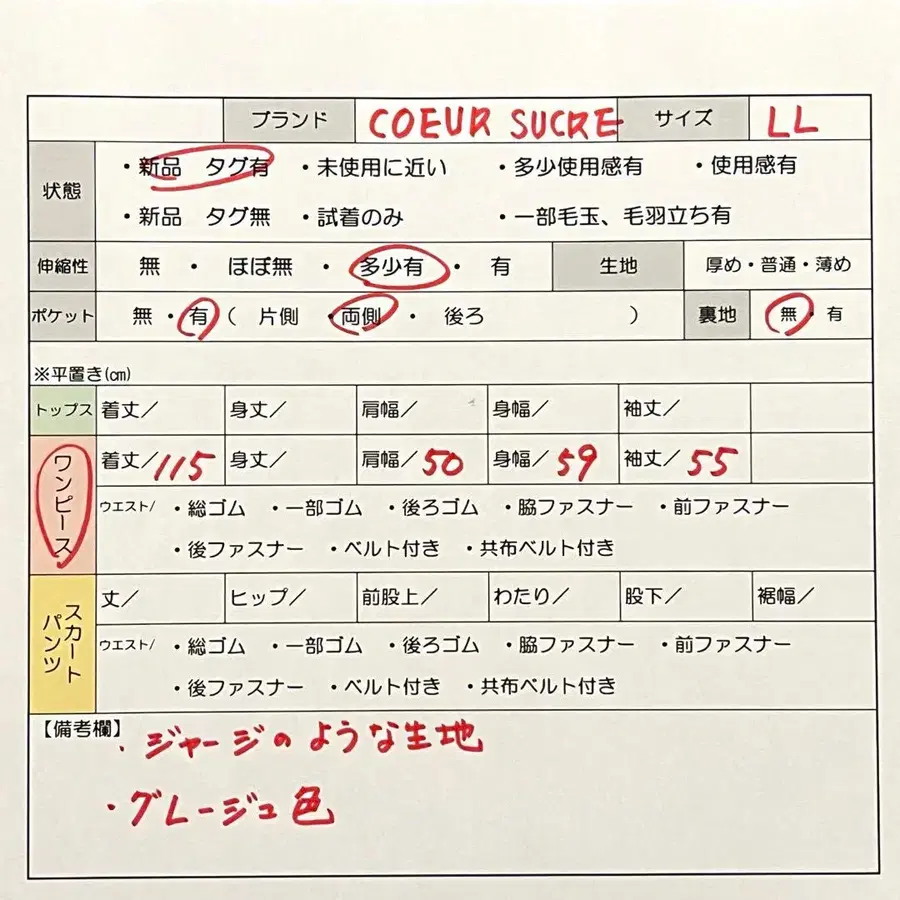 ブランド COEUR SUCRE サイズ LL
状態 ・新品 タグ有 ・未使用に近い ・多少使用感有 ・使用感有
・新品 タグ無 ・試着のみ ・一部毛玉、毛羽立ち有
伸縮性 無 ・ ほぼ無 ・ 多少有 ・ 有 生地 厚め・普通・薄め
ポケット 無・有( 片側 ・両側 ・ 後ろ ) 裏地 無・有
※平置き(cm)
トップス 着丈/ 身丈/ 肩幅/ 身幅/ 袖丈/
ワンピース 着丈/115 身丈/ 肩幅/50 身幅/59 袖丈/55
ウエスト/ ・総ゴム ・一部ゴム ・後ろゴム ・脇ファスナー ・前ファスナー
・後ファスナー ・ベルト付き ・共布ベルト付き
スカート パンツ 丈/ ヒップ/ 前股上/ わたり/ 股下/ 裾幅/
ウエスト/ ・総ゴム ・一部ゴム ・後ろゴム ・脇ファスナー ・前ファスナー
・後ファスナー ・ベルト付き ・共布ベルト付き
【備考欄】
・ジャージのような生地
・グレージュ色